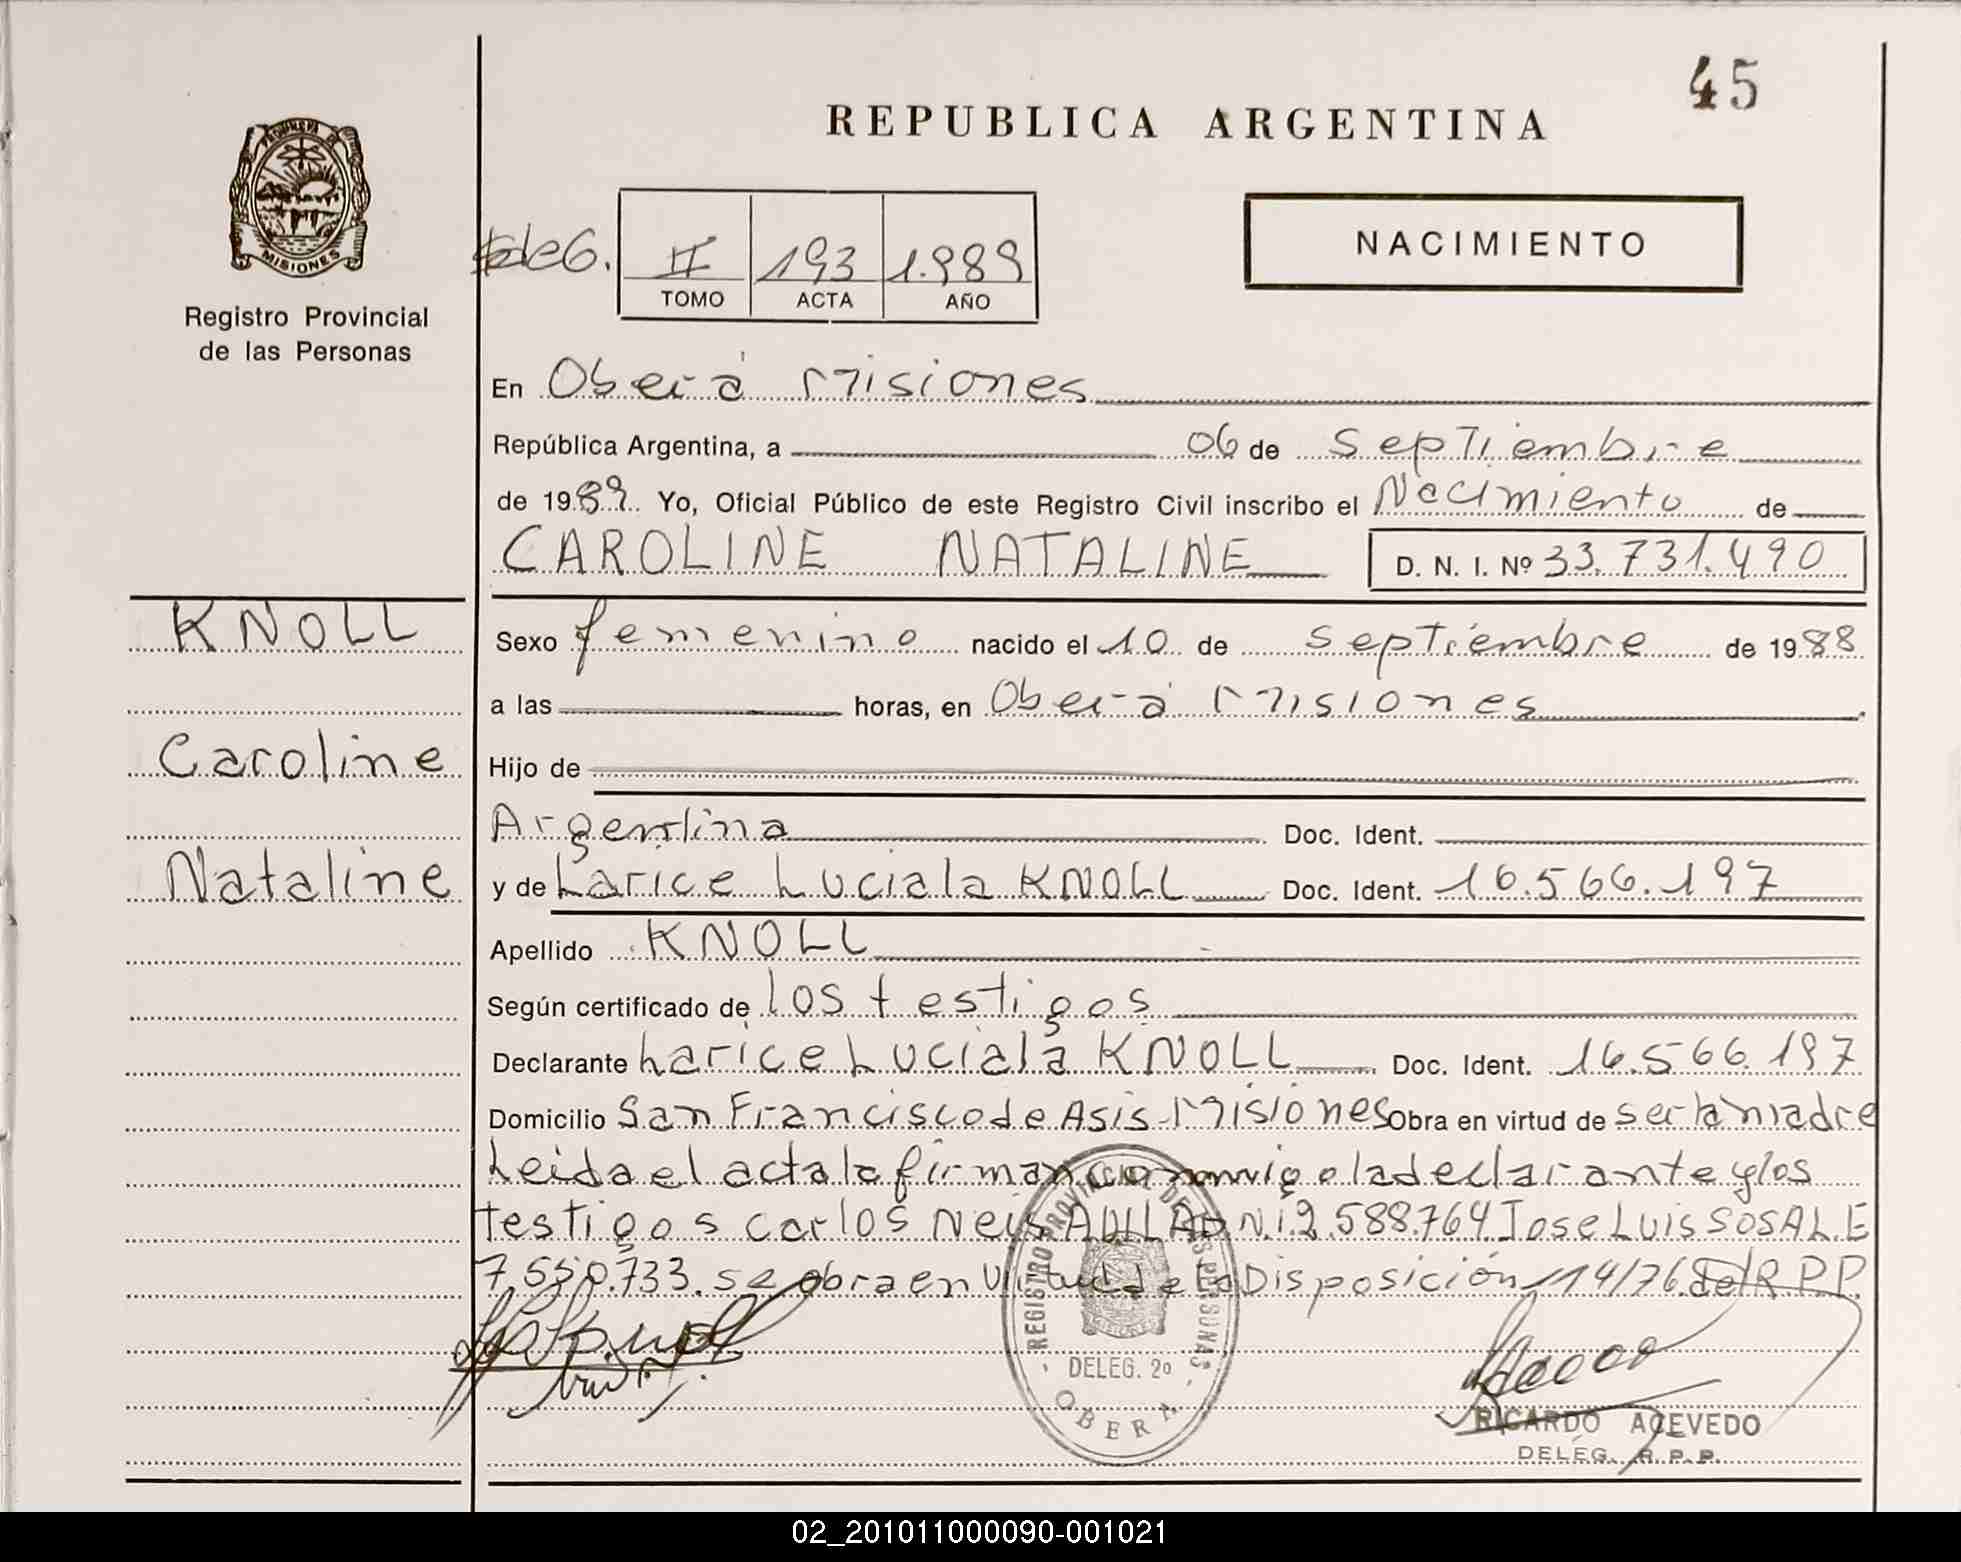 45
REPUBLICA ARGENTINA
PROVINCIA DE
MISIONES
Registro Provincial
de las Personas
deG. II 193 1.989
TOMO ACTA AÑO
NACIMIENTO
En Oberá Misiones
República Argentina, a 06 de Septiembre
de 1989. Yo, Oficial Público de este Registro Civil inscribo el Nacimiento de
CAROLINE NATALINE D. N. I. Nº 33.731.490
KNOLL
Caroline
Nataline
Sexo femenino nacido el 10 de Septiembre de 1988
a las horas, en Oberá Misiones
Hijo de
Argentina Doc. Ident.
y de Larice Luciala KNOLL Doc. Ident. 16.566.197
Apellido KNOLL
Según certificado de los testigos
Declarante Larice Luciala KNOLL Doc. Ident. 16.566.197
Domicilio San Francisco de Asis Misiones Obra en virtud de ser la madre
Leida el acta la firman conmigo la declarante y los
testigos Carlos Neis D.N.i 2.588.764 Jose Luis SOSA L.E
7.550.733. se obra en virtud de la Disposición 114/76 del R.P.P.
REGISTRO PROVINCIAL DE LAS PERSONAS
MISIONES
DELEG. 2º
OBERA
RICARDO ACEVEDO
DELEG. R. P. P.
02_201011000090-001021